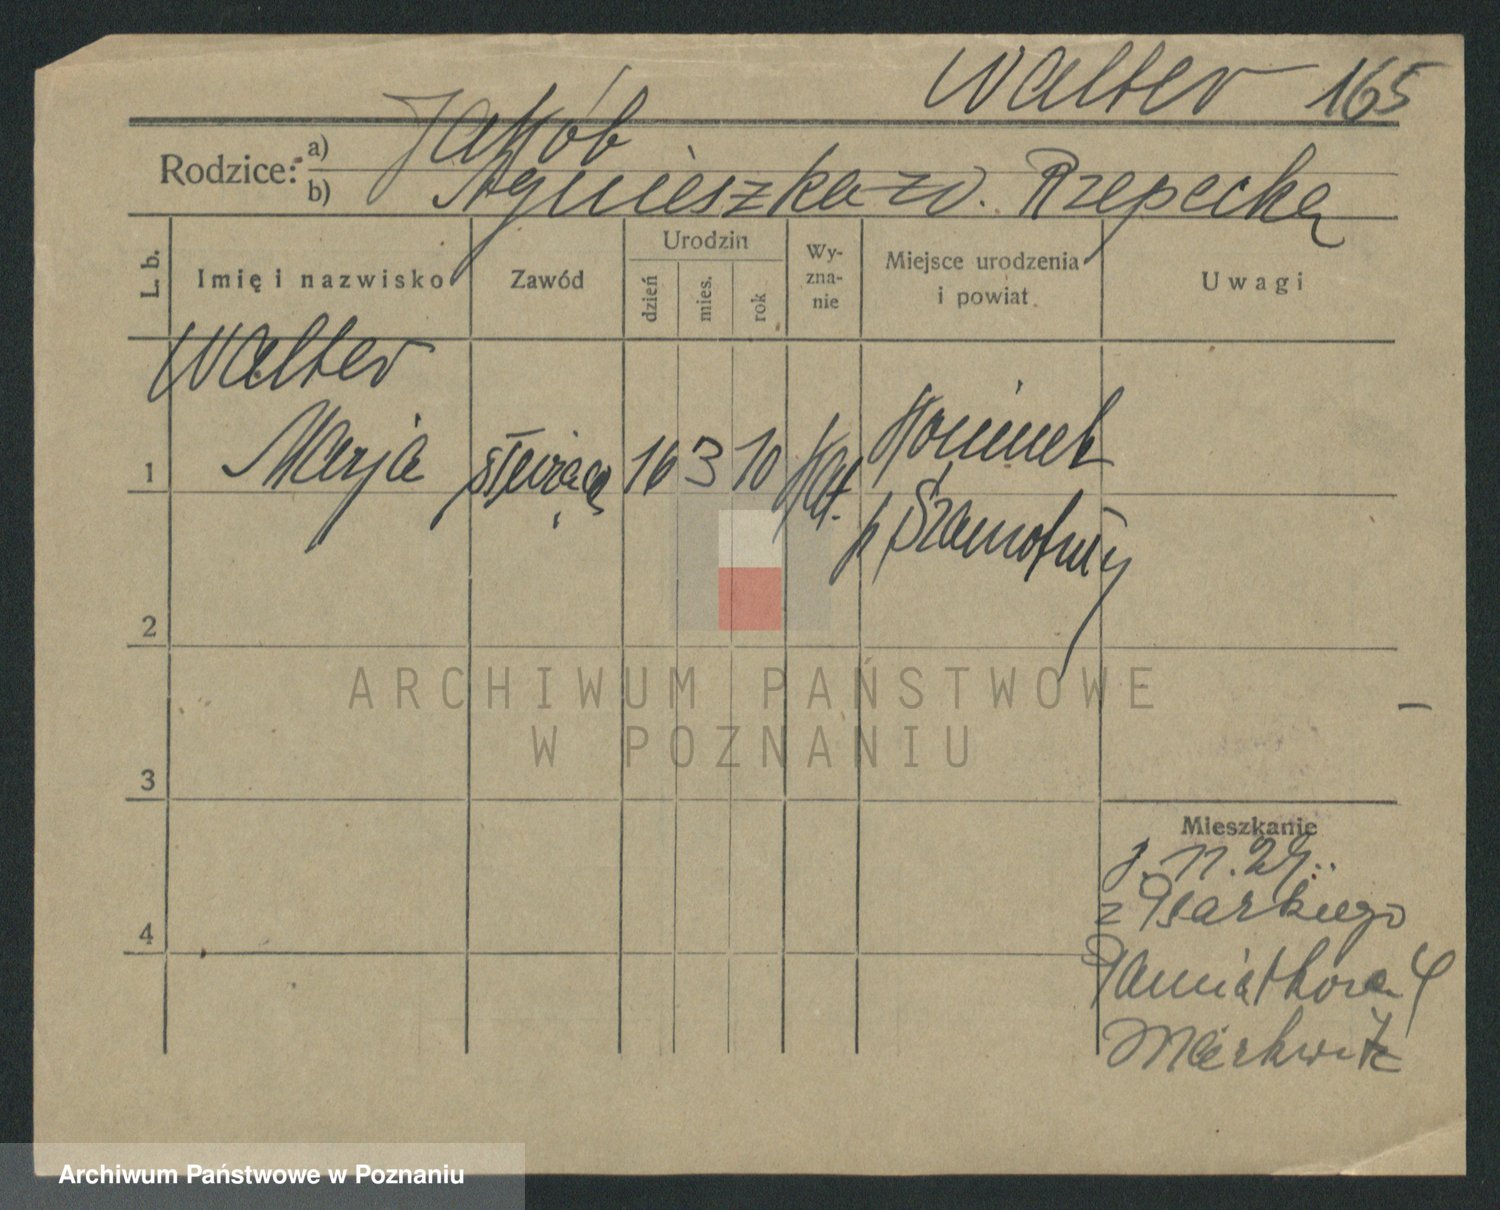 Walter 165
Rodzice: a) Jakób
b) Agnieszka z d. Rzepecka
L. b.
Imię i nazwisko
Zawód
Urodzin
dzień
mies.
rok
Wy-
zna-
nie
Miejsce urodzenia
i powiat
Uwagi
Walter
1 Marja służąca 16 3 10 kat. Koninek
p Szamotuły
2
3
4
Mieszkanie
z Psarskiego
Markwitz
ARCHIWUM PAŃSTWOWE
W POZNANIU
Archiwum Państwowe w Poznaniu